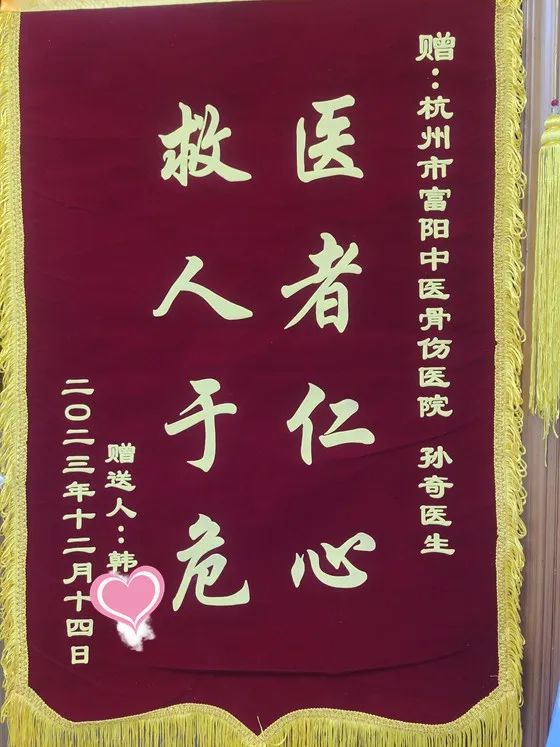 赠：杭州市富阳中医骨伤医院 孙奇医生
医者仁心
救人于危
赠送人：韩
二〇二三年十二月十四日